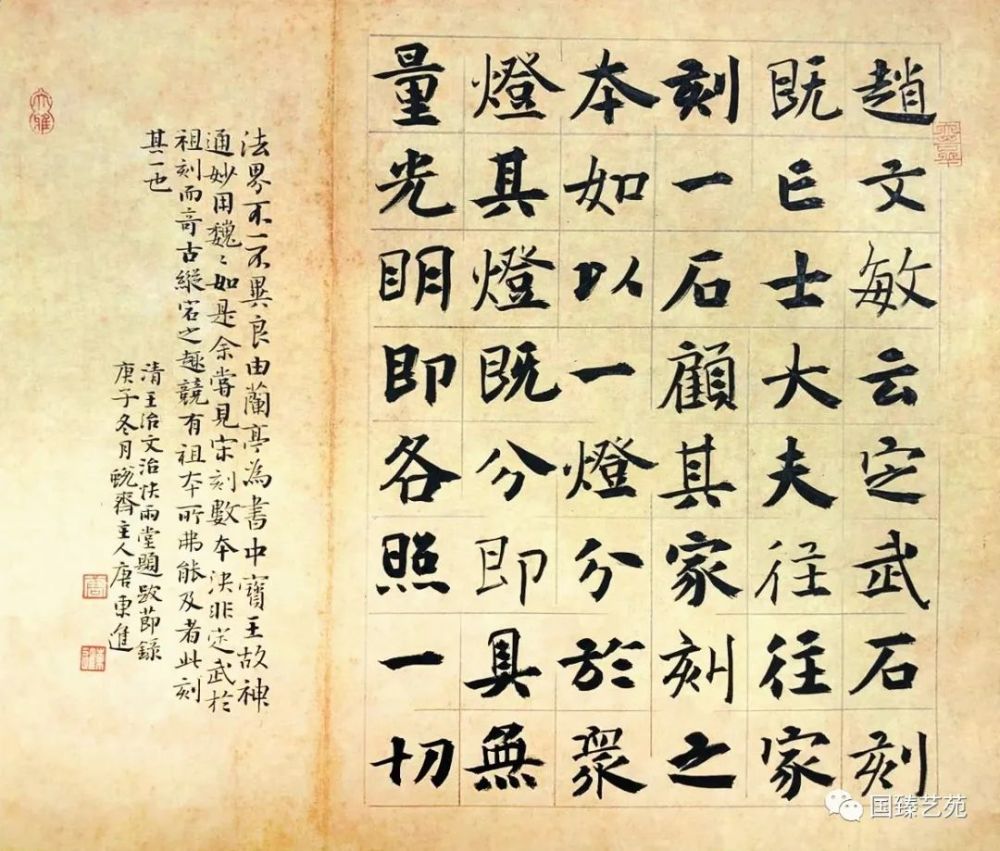 趙文敏云定武石刻
既亡士大夫往往家
刻一石顧其家刻之
本如以一燈分於眾
燈其燈既分即具無
量光明即各照一切
法界不一不異良由蘭亭為書中寶王故神
通妙用魏〻如是余嘗見宋刻數本決非定武於
祖刻而奇古縱宕之趣競有祖本所弗能及者此刻
其一也
清王治文治快雨堂題跋節錄
庚子冬月蛻齋主人唐東進
国臻艺苑